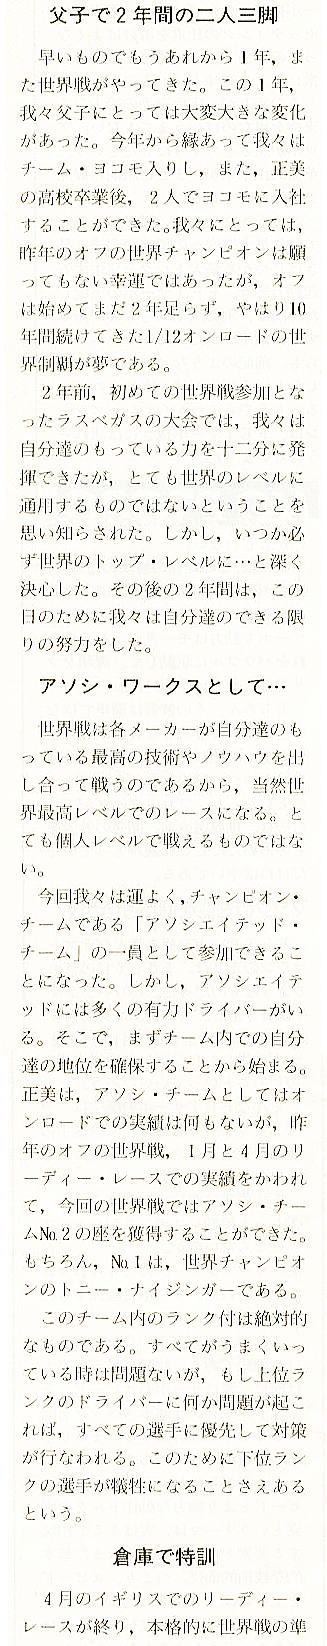 父子で２年間の二人三脚
早いものでもうあれから１年，ま
た世界戦がやってきた。この１年，
我々父子にとっては大変大きな変化
があった。今年から縁あって我々は
チーム・ヨコモ入りし，また，正美
の高校卒業後，２人でヨコモに入社
することができた。我々にとっては，
昨年のオフの世界チャンピオンは願
ってもない幸運ではあったが，オフ
は始めてまだ２年足らず，やはり10
年間続けてきた1/12オンロードの世
界制覇が夢である。
２年前，初めての世界戦参加とな
ったラスベガスの大会では，我々は
自分達のもっている力を十二分に発
揮できたが，とても世界のレベルに
通用するものではないということを
思い知らされた。しかし，いつか必
ず世界のトップ・レベルに…と深く
決心した。その後の２年間は，この
日のために我々は自分達のできる限
りの努力をした。
アソシ・ワークスとして…
世界戦は各メーカーが自分達のも
っている最高の技術やノウハウを出
し合って戦うのであるから，当然世
界最高レベルでのレースになる。と
ても個人レベルで戦えるものではな
い。
今回我々は運よく，チャンピオン・
チームである「アソシエイテッド・
チーム」の一員として参加できるこ
とになった。しかし，アソシエイテ
ッドには多くの有力ドライバーがい
る。そこで，まずチーム内での自分
達の地位を確保することから始まる。
正美は，アソシ・チームとしてはオ
ンロードでの実績は何もないが，昨
年のオフの世界戦，１月と４月のリ
ーディー・レースでの実績をかわれ
て，今回の世界戦ではアソシ・チー
ム№２の座を獲得することができた。
もちろん，№１は，世界チャンピオ
ンのトニー・ナイジンガーである。
このチーム内のランク付は絶対的
なものである。すべてがうまくいっ
ている時は問題ないが，もし上位ラ
ンクのドライバーに何か問題が起こ
れば，すべての選手に優先して対策
が行なわれる。このために下位ラン
クの選手が犠牲になることさえある
という。
倉庫で特訓
４月のイギリスでのリーディー・
レースが終り，本格的に世界戦の準